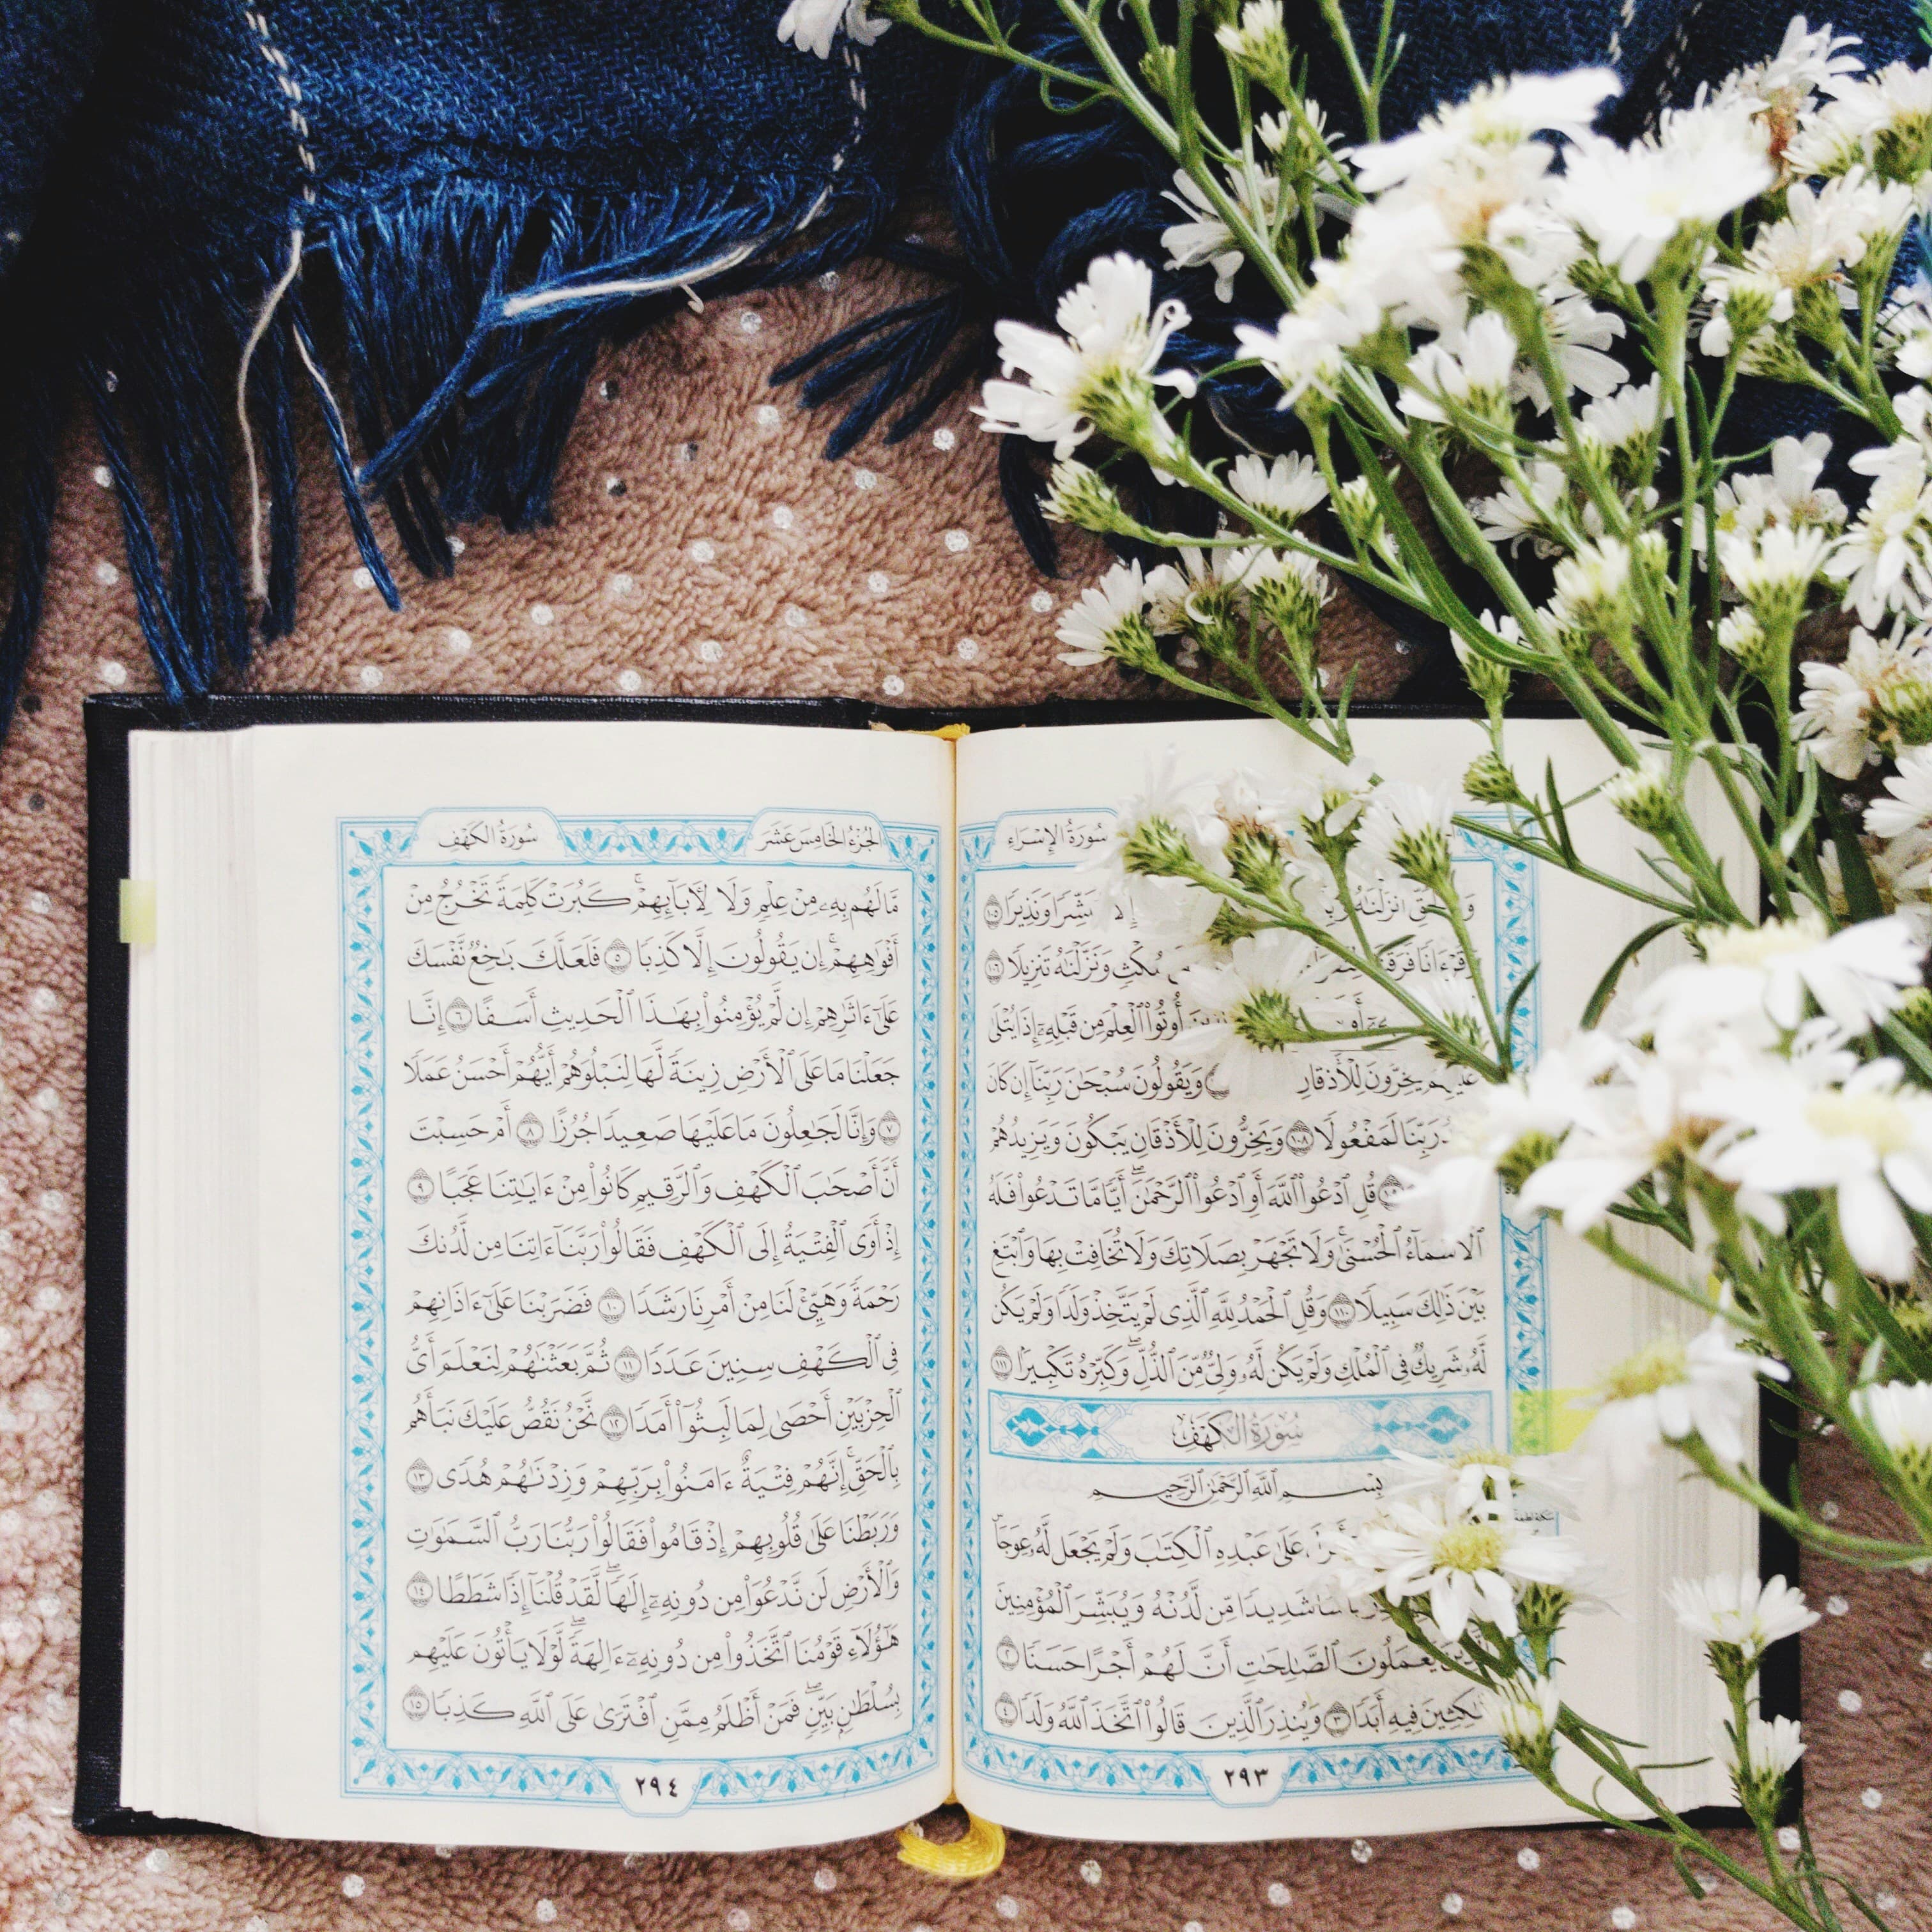 سُورَةُ الإِسْرَاءِ
أَنزَلْنَٰهُ وَنَذِيرًا ١٠٥
مُكْثٍ وَنَزَّلْنَٰهُ تَنزِيلًا ١٠٦
أُوتُوا۟ ٱلْعِلْمَ مِن قَبْلِهِۦٓ إِذَا يُتْلَىٰ
يَخِرُّونَ لِلْأَذْقَانِ وَيَقُولُونَ سُبْحَٰنَ رَبِّنَآ إِن كَانَ
رَبِّنَا لَمَفْعُولًا ١٠٨ وَيَخِرُّونَ لِلْأَذْقَانِ يَبْكُونَ وَيَزِيدُهُمْ
قُلِ ٱدْعُوا۟ ٱللَّهَ أَوِ ٱدْعُوا۟ ٱلرَّحْمَٰنَ ۖ أَيًّا مَّا تَدْعُوا۟ فَلَهُ
ٱلْأَسْمَآءُ ٱلْحُسْنَىٰ ۚ وَلَا تَجْهَرْ بِصَلَاتِكَ وَلَا تُخَافِتْ بِهَا وَٱبْتَغِ
بَيْنَ ذَٰلِكَ سَبِيلًا ١١٠ وَقُلِ ٱلْحَمْدُ لِلَّهِ ٱلَّذِى لَمْ يَتَّخِذْ وَلَدًا وَلَمْ يَكُن
لَّهُۥ شَرِيكٌ فِى ٱلْمُلْكِ وَلَمْ يَكُن لَّهُۥ وَلِىٌّ مِّنَ ٱلذُّلِّ ۖ وَكَبِّرْهُ تَكْبِيرًۢا ١١١
سُورَةُ الكَهْفِ
بِسْمِ ٱللَّهِ ٱلرَّحْمَٰنِ ٱلرَّحِيمِ
عَلَىٰ عَبْدِهِ ٱلْكِتَٰبَ وَلَمْ يَجْعَل لَّهُۥ عِوَجَا ۜ
شَدِيدًا مِّن لَّدُنْهُ وَيُبَشِّرَ ٱلْمُؤْمِنِينَ
يَعْمَلُونَ ٱلصَّٰلِحَٰتِ أَنَّ لَهُمْ أَجْرًا حَسَنًا ٢
مَّٰكِثِينَ فِيهِ أَبَدًا ٣ وَيُنذِرَ ٱلَّذِينَ قَالُوا۟ ٱتَّخَذَ ٱللَّهُ وَلَدًا ٤
٢٩٣
الجُزْءُ الخَامِسَ عَشَرَ سُورَةُ الكَهْفِ
مَّا لَهُم بِهِۦ مِنْ عِلْمٍ وَلَا لِـَٔابَآئِهِمْ ۚ كَبُرَتْ كَلِمَةً تَخْرُجُ مِنْ
أَفْوَٰهِهِمْ ۚ إِن يَقُولُونَ إِلَّا كَذِبًا ٥ فَلَعَلَّكَ بَٰخِعٌ نَّفْسَكَ
عَلَىٰٓ ءَاثَٰرِهِمْ إِن لَّمْ يُؤْمِنُوا۟ بِهَٰذَا ٱلْحَدِيثِ أَسَفًا ٦ إِنَّا
جَعَلْنَا مَا عَلَى ٱلْأَرْضِ زِينَةً لَّهَا لِنَبْلُوَهُمْ أَيُّهُمْ أَحْسَنُ عَمَلًا
٧ وَإِنَّا لَجَٰعِلُونَ مَا عَلَيْهَا صَعِيدًا جُرُزًا ٨ أَمْ حَسِبْتَ
أَنَّ أَصْحَٰبَ ٱلْكَهْفِ وَٱلرَّقِيمِ كَانُوا۟ مِنْ ءَايَٰتِنَا عَجَبًا ٩
إِذْ أَوَى ٱلْفِتْيَةُ إِلَى ٱلْكَهْفِ فَقَالُوا۟ رَبَّنَآ ءَاتِنَا مِن لَّدُنكَ
رَحْمَةً وَهَيِّئْ لَنَا مِنْ أَمْرِنَا رَشَدًا ١٠ فَضَرَبْنَا عَلَىٰٓ ءَاذَانِهِمْ
فِى ٱلْكَهْفِ سِنِينَ عَدَدًا ١١ ثُمَّ بَعَثْنَٰهُمْ لِنَعْلَمَ أَىُّ
ٱلْحِزْبَيْنِ أَحْصَىٰ لِمَا لَبِثُوٓا۟ أَمَدًا ١٢ نَّحْنُ نَقُصُّ عَلَيْكَ نَبَأَهُم
بِٱلْحَقِّ ۚ إِنَّهُمْ فِتْيَةٌ ءَامَنُوا۟ بِرَبِّهِمْ وَزِدْنَٰهُمْ هُدًى ١٣
وَرَبَطْنَا عَلَىٰ قُلُوبِهِمْ إِذْ قَامُوا۟ فَقَالُوا۟ رَبُّنَا رَبُّ ٱلسَّمَٰوَٰتِ
وَٱلْأَرْضِ لَن نَّدْعُوَا۟ مِن دُونِهِۦٓ إِلَٰهًا ۖ لَّقَدْ قُلْنَآ إِذًا شَطَطًا ١٤
هَٰٓؤُلَآءِ قَوْمُنَا ٱتَّخَذُوا۟ مِن دُونِهِۦٓ ءَالِهَةً ۖ لَّوْلَا يَأْتُونَ عَلَيْهِم
بِسُلْطَٰنٍۭ بَيِّنٍ ۖ فَمَنْ أَظْلَمُ مِمَّنِ ٱفْتَرَىٰ عَلَى ٱللَّهِ كَذِبًا ١٥
٢٩٤